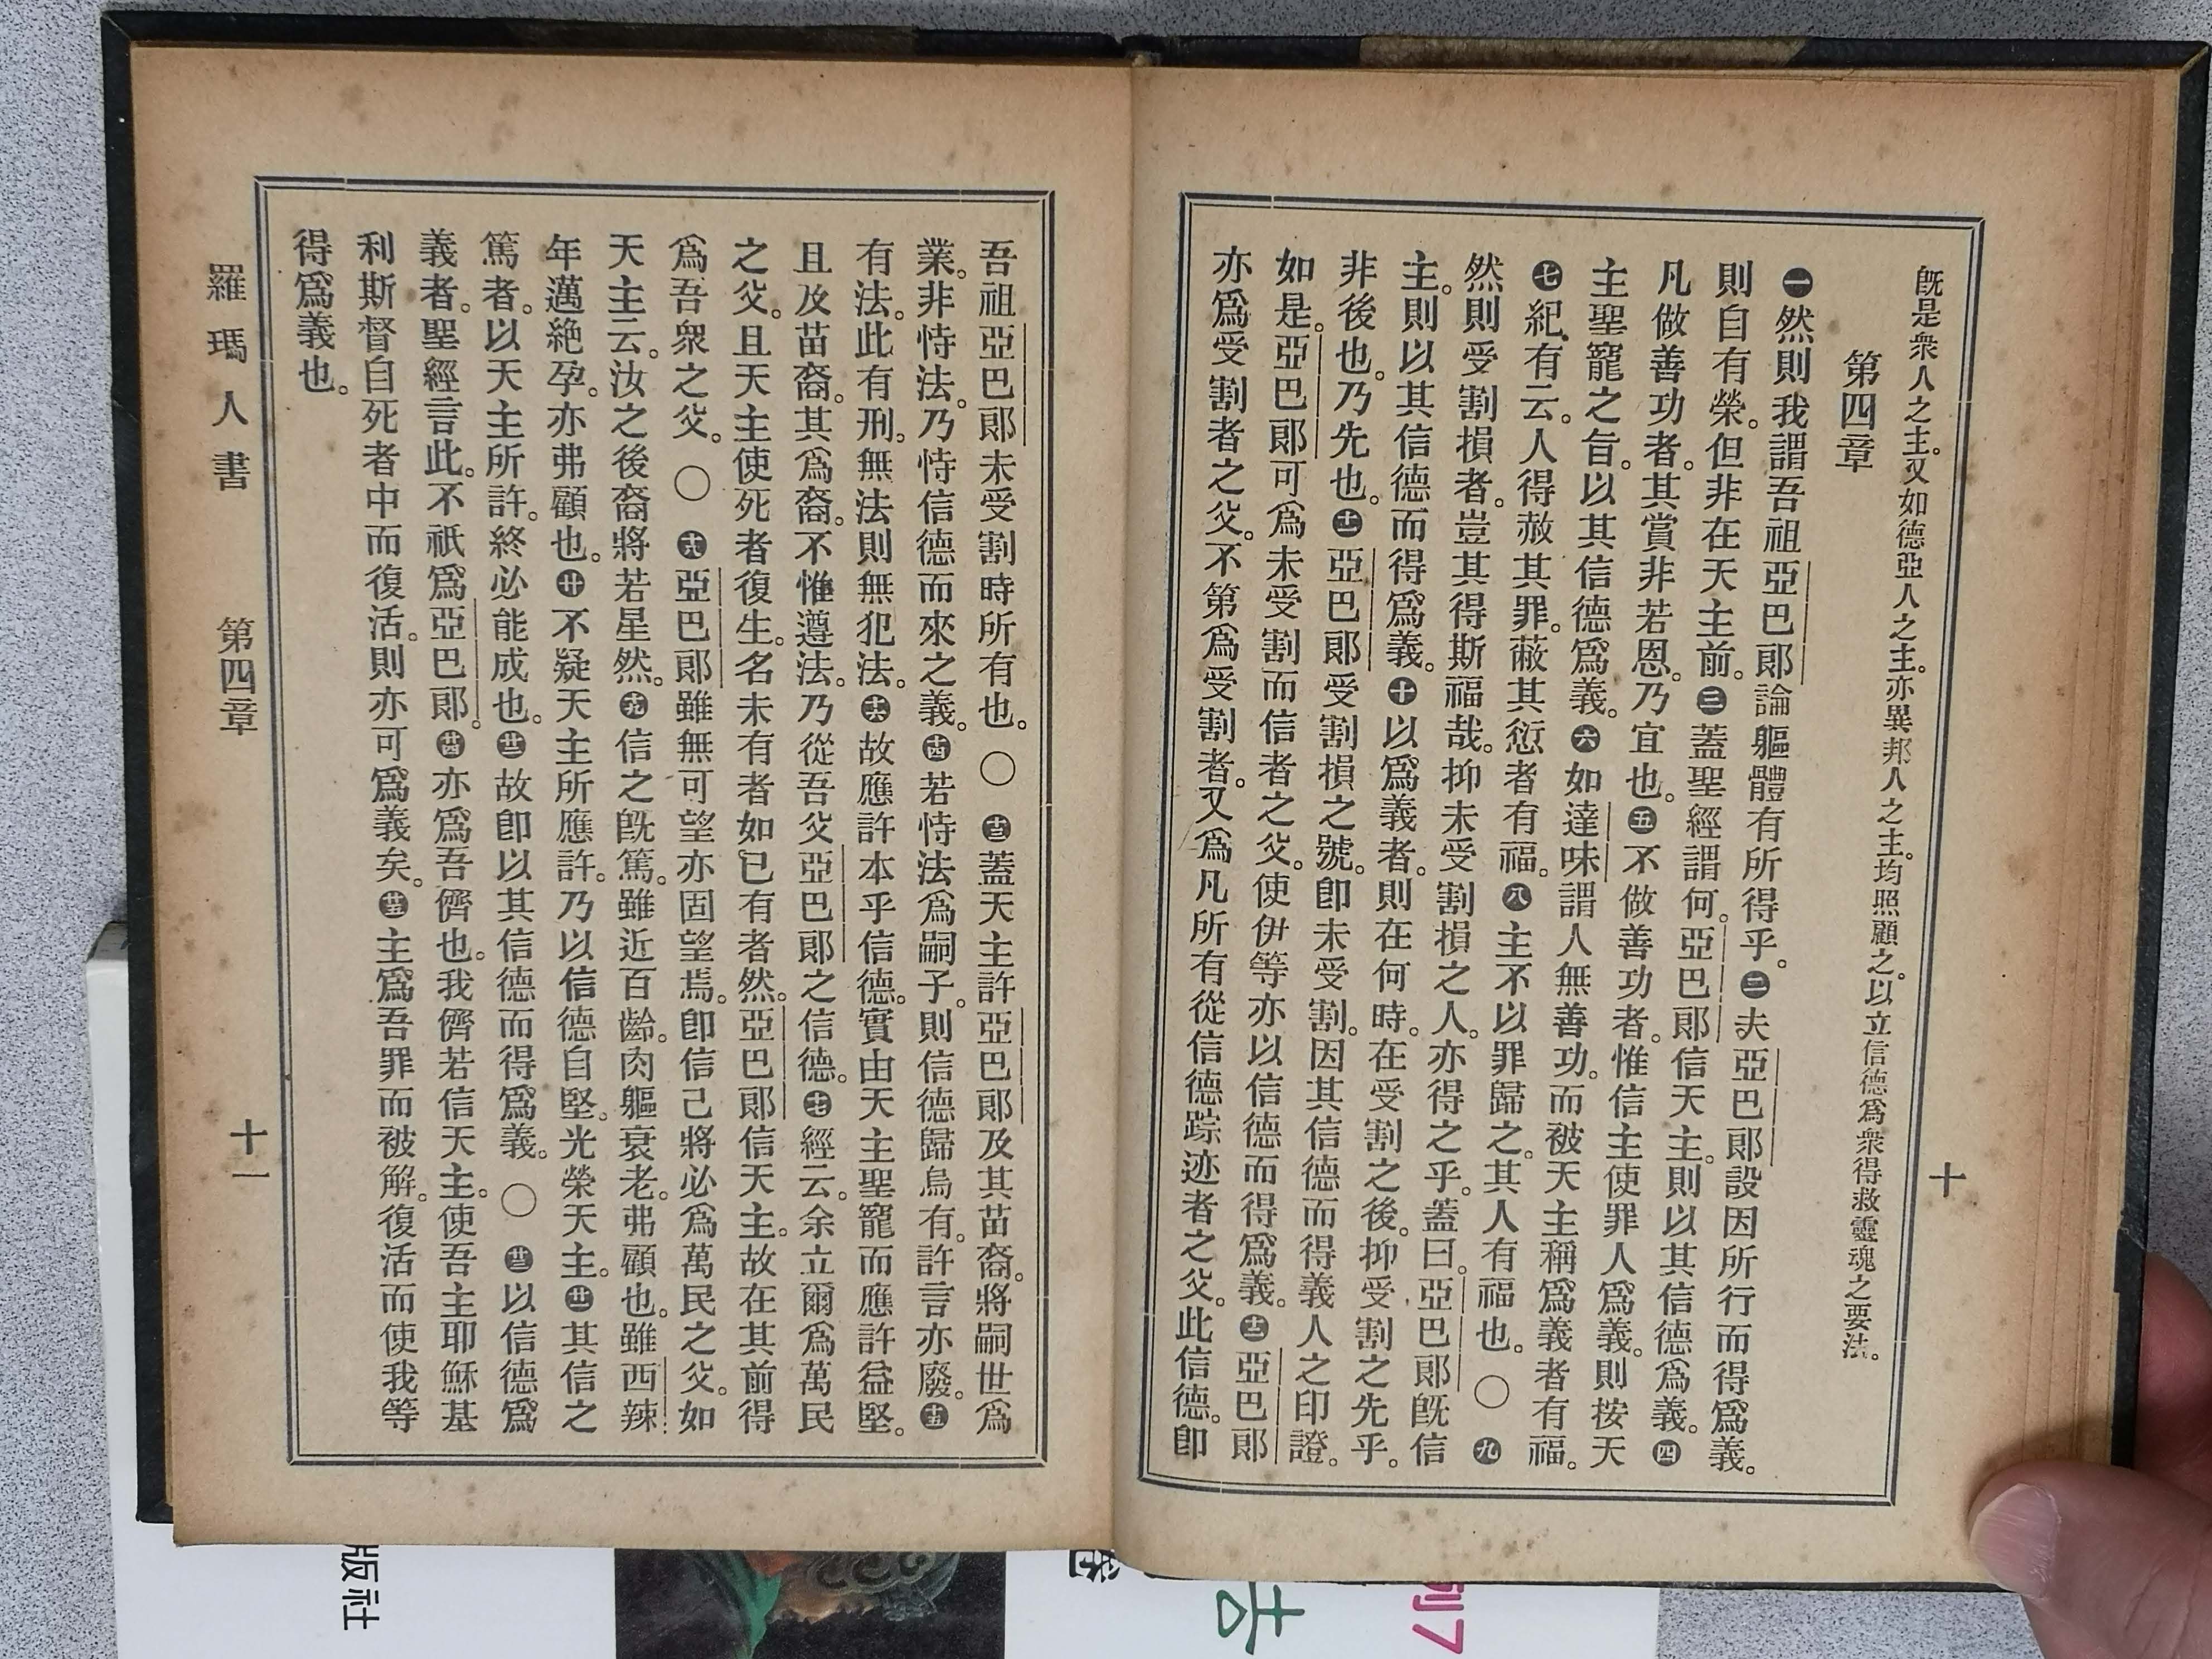 十
旣是衆人之主。又如德亞人之主。亦異邦人之主。均照顧之。以立信德爲衆得救靈魂之要法。
第四章
㊀然則我謂吾祖亞巴郞論軀體有所得乎。㊁夫亞巴郞設因所行而得爲義。
則自有榮。但非在天主前。㊂蓋聖經謂何。亞巴郞信天主。則以其信德爲義。㊃
凡做善功者。其賞非若恩。乃宜也。㊄不做善功者。惟信主使罪人爲義。則按天
主聖寵之旨。以其信德爲義。㊅如達味謂人無善功。而被天主稱爲義者有福。
㊆紀有云。人得赦其罪。蔽其愆者有福。㊇主不以罪歸之。其人有福也。〇㊈
然則受割損者。豈其得斯福哉。抑未受割損之人。亦得之乎。蓋曰。亞巴郞旣信
主。則以其信德而得爲義。㊉以爲義者。則在何時。在受割之後。抑受割之先乎。
非後也。乃先也。⑪亞巴郞受割損之號。卽未受割。因其信德而得義人之印證。
如是。亞巴郞可爲未受割而信者之父。使伊等亦以信德而得爲義。⑫亞巴郞
亦爲受割者之父。不第爲受割者。又爲凡所有從信德踪迹者之父。此信德。卽
吾祖亞巴郞未受割時所有也。〇⑬蓋天主許亞巴郞及其苗裔。將嗣世爲
業。非恃法。乃恃信德而來之義。⑭若恃法爲嗣子。則信德歸烏有。許言亦廢。⑮
有法。此有刑。無法則無犯法。⑯故應許本乎信德。實由天主聖寵而應許益堅。
且及苗裔。其爲裔。不惟遵法。乃從吾父亞巴郞之信德。⑰經云。余立爾爲萬民
之父。且天主使死者復生。名未有者如已有者然。亞巴郞信天主。故在其前得
爲吾衆之父。〇⑱亞巴郞雖無可望亦固望焉。卽信己將必爲萬民之父。如
天主云。汝之後裔將若星然。⑲信之旣篤。雖近百齡。肉軀衰老。弗顧也。雖西辣
年邁絶孕。亦弗顧也。⑳不疑天主所應許。乃以信德自堅。光榮天主。㉑其信之
篤者。以天主所許。終必能成也。㉒故卽以其信德而得爲義。〇㉓以信德爲
義者。聖經言此。不祇爲亞巴郞。㉔亦爲吾儕也。我儕若信天主。使吾主耶穌基
利斯督自死者中而復活。則亦可爲義矣。㉕主爲吾罪而被解。復活而使我等
得爲義也。
羅瑪人書 第四章 十一
版社
列7